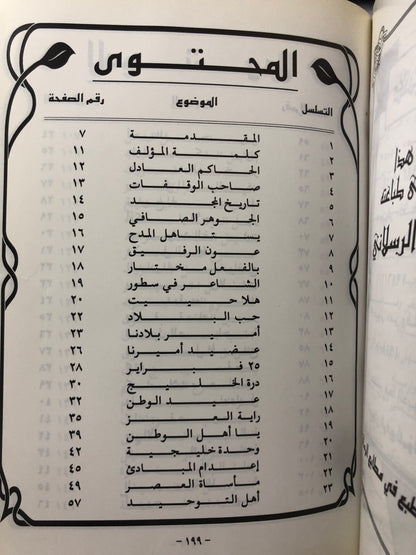 المحتوى
التسلسل الموضوع رقم الصفحة
١ المقدمة ٧
٢ كلمة المؤلف ١١
٣ الحاكم العادل ١٢
٤ صاحب الوقفات ١٣
٥ تاريخ المجد ١٤
٦ الجوهر الصافي ١٥
٧ يستاهل المدح ١٦
٨ عون الرفيق ١٧
٩ بالفعل مختار ١٨
١٠ الشاعر في سطور ١٩
١١ هلا حييت ٢٠
١٢ حب البلاد ٢٢
١٣ أمير بلادنا ٢٣
١٤ عضيد أميرنا ٢٦
١٥ ٢٥ فبراير ٢٨
١٦ درة الخليج ٣٠
١٧ عيد الوطن ٣٢
١٨ راية العز ٣٥
١٩ يا أهل الوطن ٣٩
٢٠ وحدة خليجية ٤٢
٢١ إعدام المبادئ ٤٥
٢٢ مأساة العصر ٤٩
٢٣ أهل التوحيد ٥٧
- ١٩٩ -
هذا
طباعة